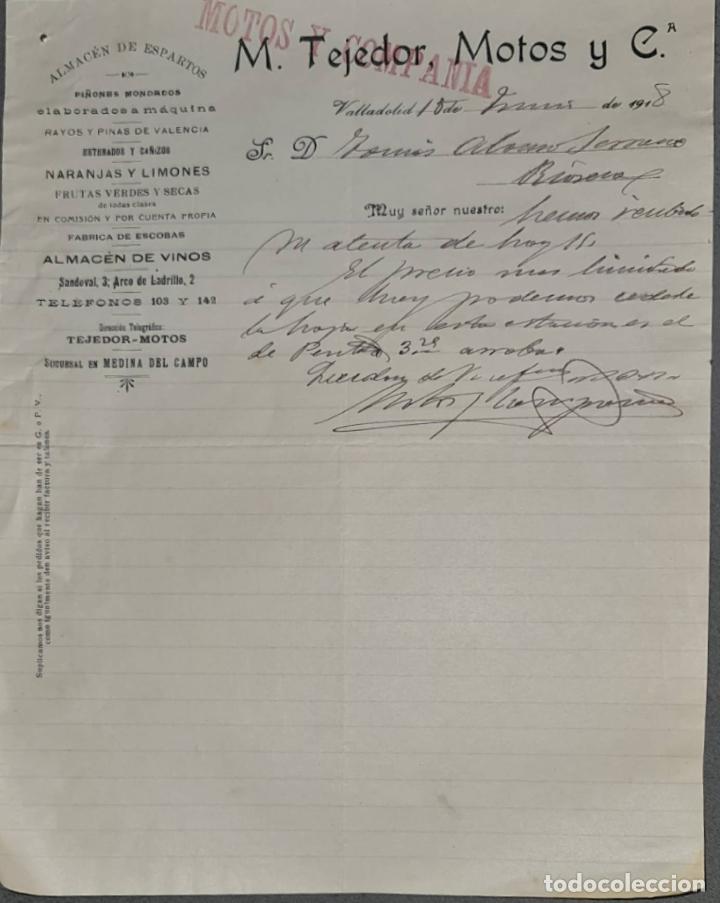 MOTOS Y COMPAÑIA
M. Tejedor, Motos y C.ª
Valladolid 18 de de 1918
Sr. D. Tomás Alonso Serrano
Rioseco
Muy señor nuestro: hemos recibido
su atenta de hoy
El precio mas limitado
á que hoy podemos cederle
la hoja en esta estacion es el
de Pesetas arroba.
ALMACÉN DE ESPARTOS
PIÑONES MONDADOS
elaborados a máquina
RAYOS Y PINAS DE VALENCIA
ESTERADOS Y CAÑIZOS
NARANJAS Y LIMONES
FRUTAS VERDES Y SECAS
de todas clases
EN COMISIÓN Y POR CUENTA PROPIA
FABRICA DE ESCOBAS
ALMACÉN DE VINOS
Sandoval, 3; Arco de Ladrillo, 2
TELÉFONOS 103 Y 142
Dirección Telegráfica:
TEJEDOR-MOTOS
SUCURSAL EN MEDINA DEL CAMPO
Suplicamos nos digan si los pedidos que hagan han de ser en G. o P. V.,
como igualmente den aviso al recibir factura y talones.
todocoleccion
todocoleccion.net